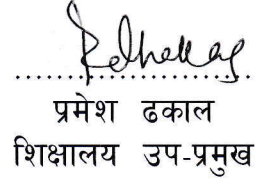 प्रमेश ढकाल
शिक्षालय उप-प्रमुख